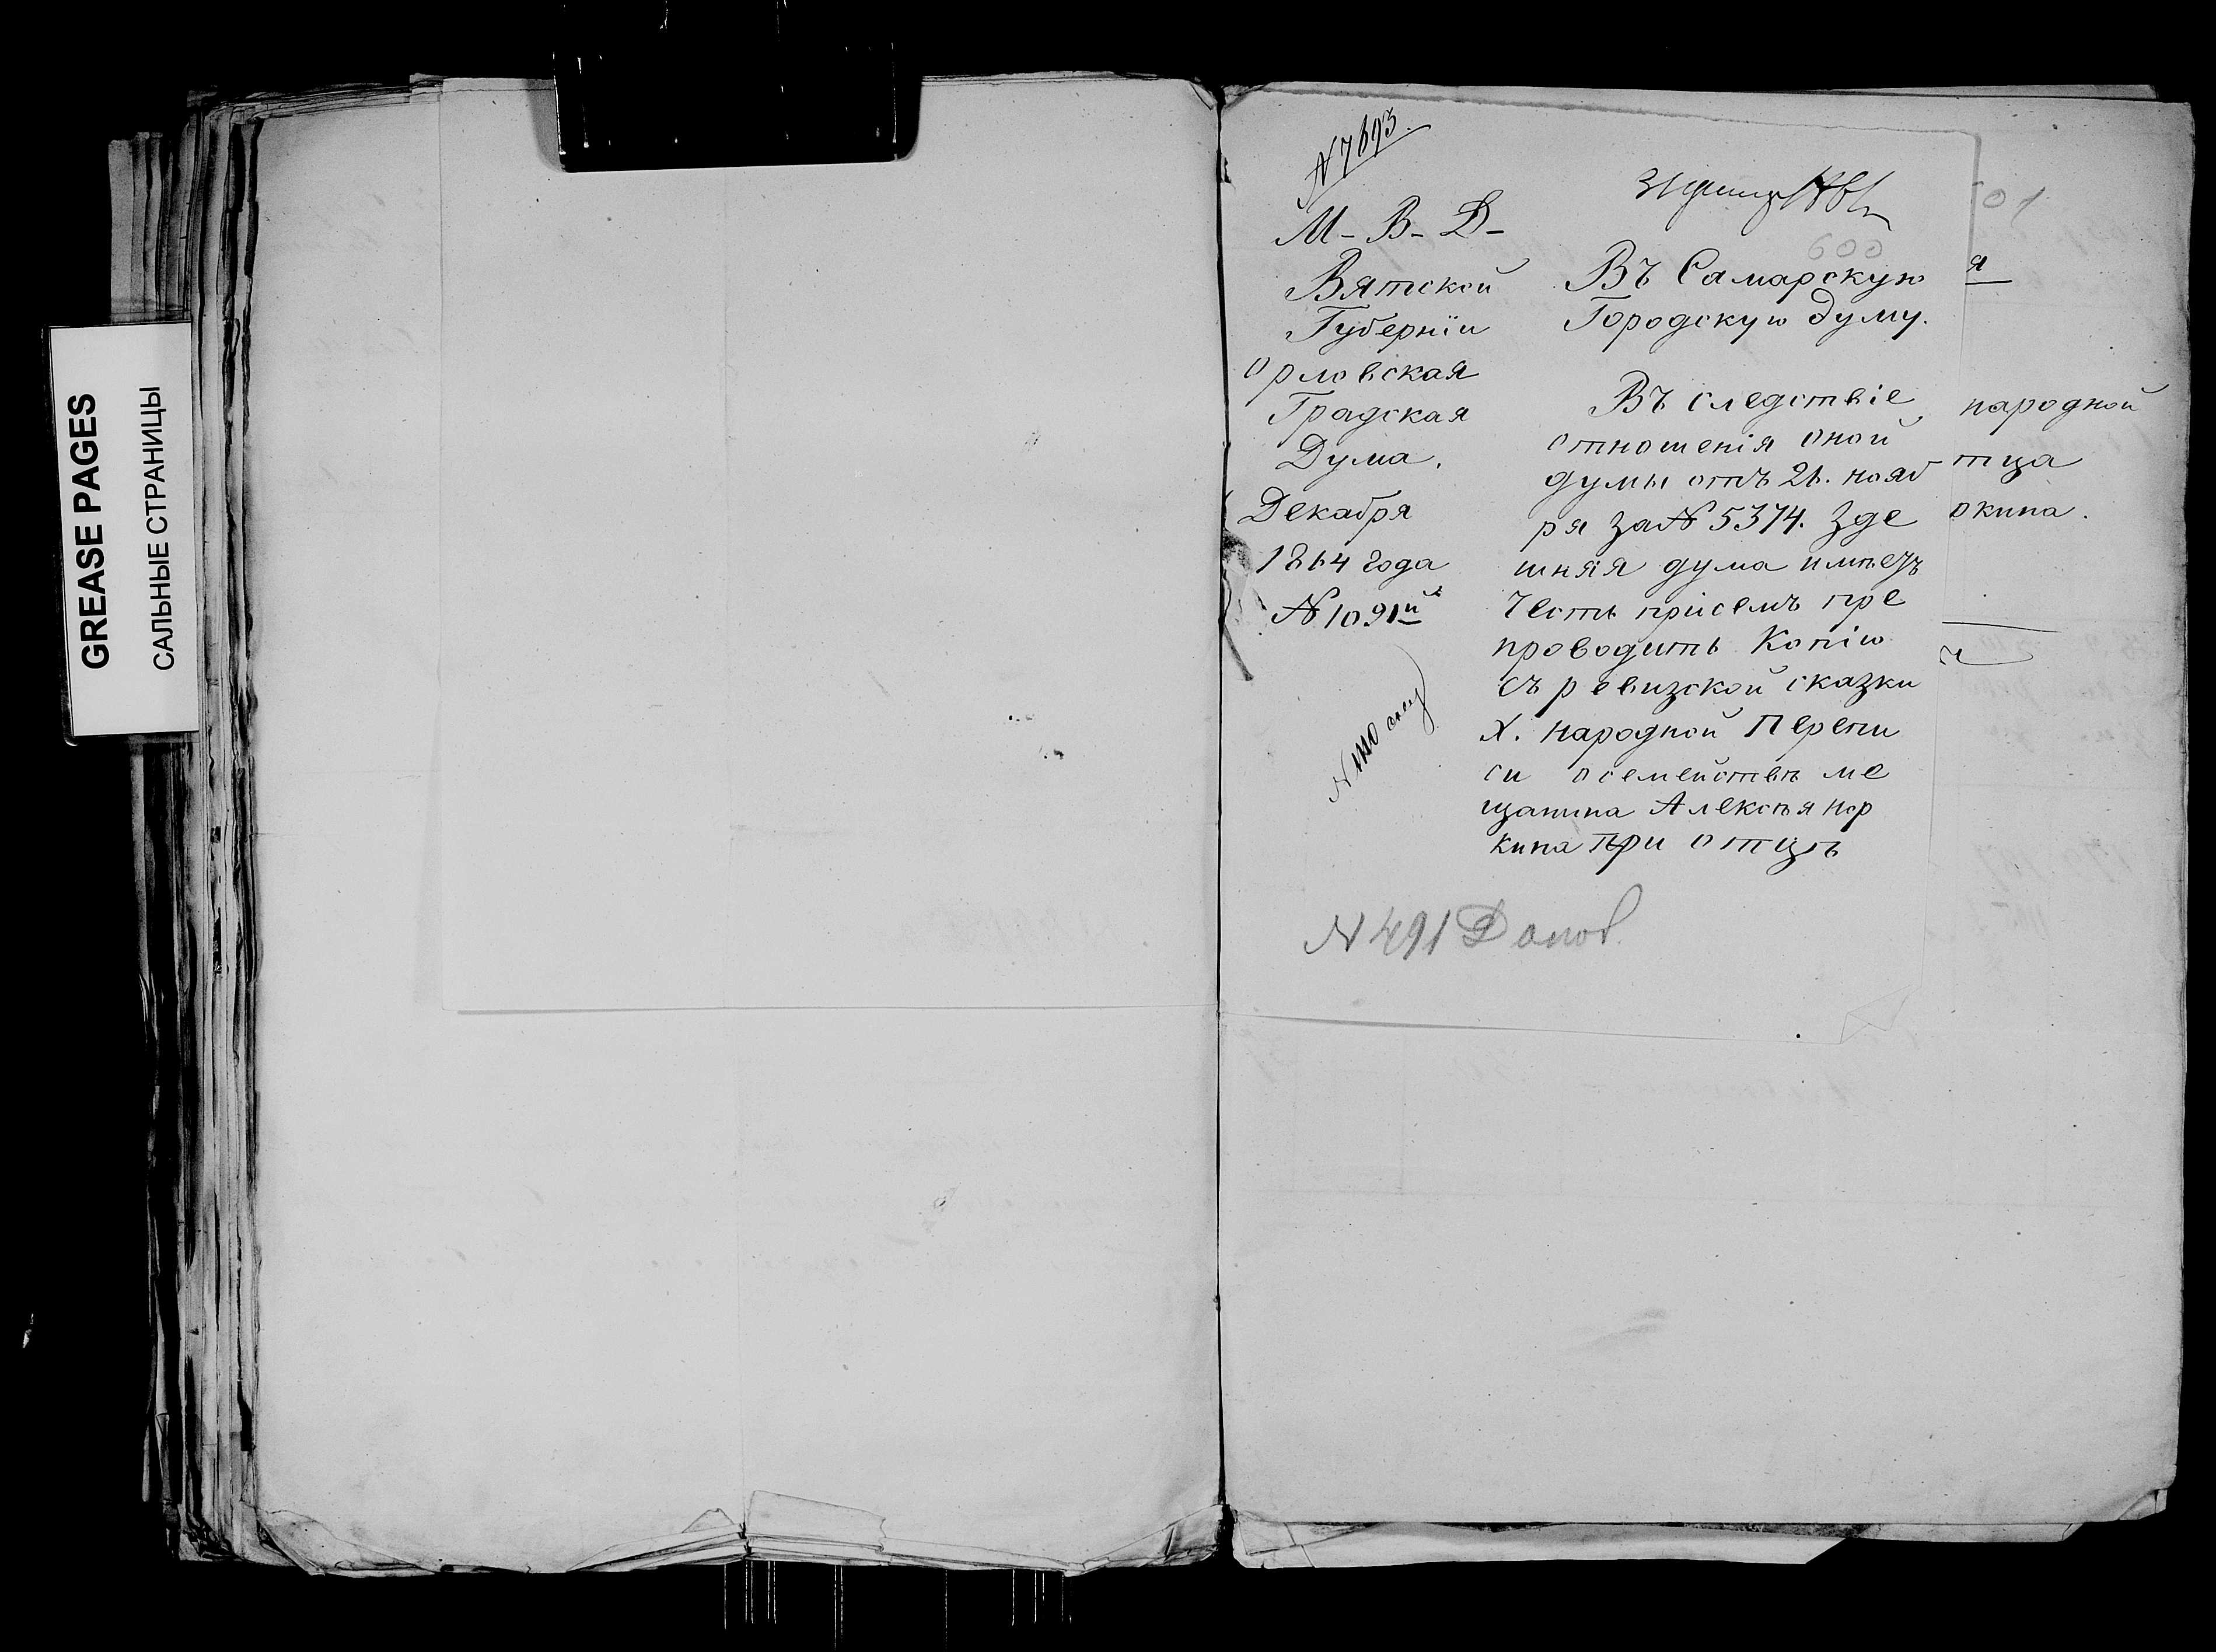 GREASE PAGES
САЛЬНЫЕ СТРАНИЦЫ
N 7693.
М - В - Д -
Вятской
Губернiи
Орловская
Градская
Дума.
Декабря
1864 года
N 1091й
31
600
Въ Самарскую
Городскую Думу.
Въ следствiе
отношенiя оной
думы отъ 21. нояб
ря за N 5374. Зде
шняя дума имѣетъ
честь присемъ пре
проводить Копiю
съ ревизской сказки
X. народной Перепи
си о семействѣ ме
щанина Алексѣя
кина при отцѣ
N 491
01
я
народной
тца
окина.